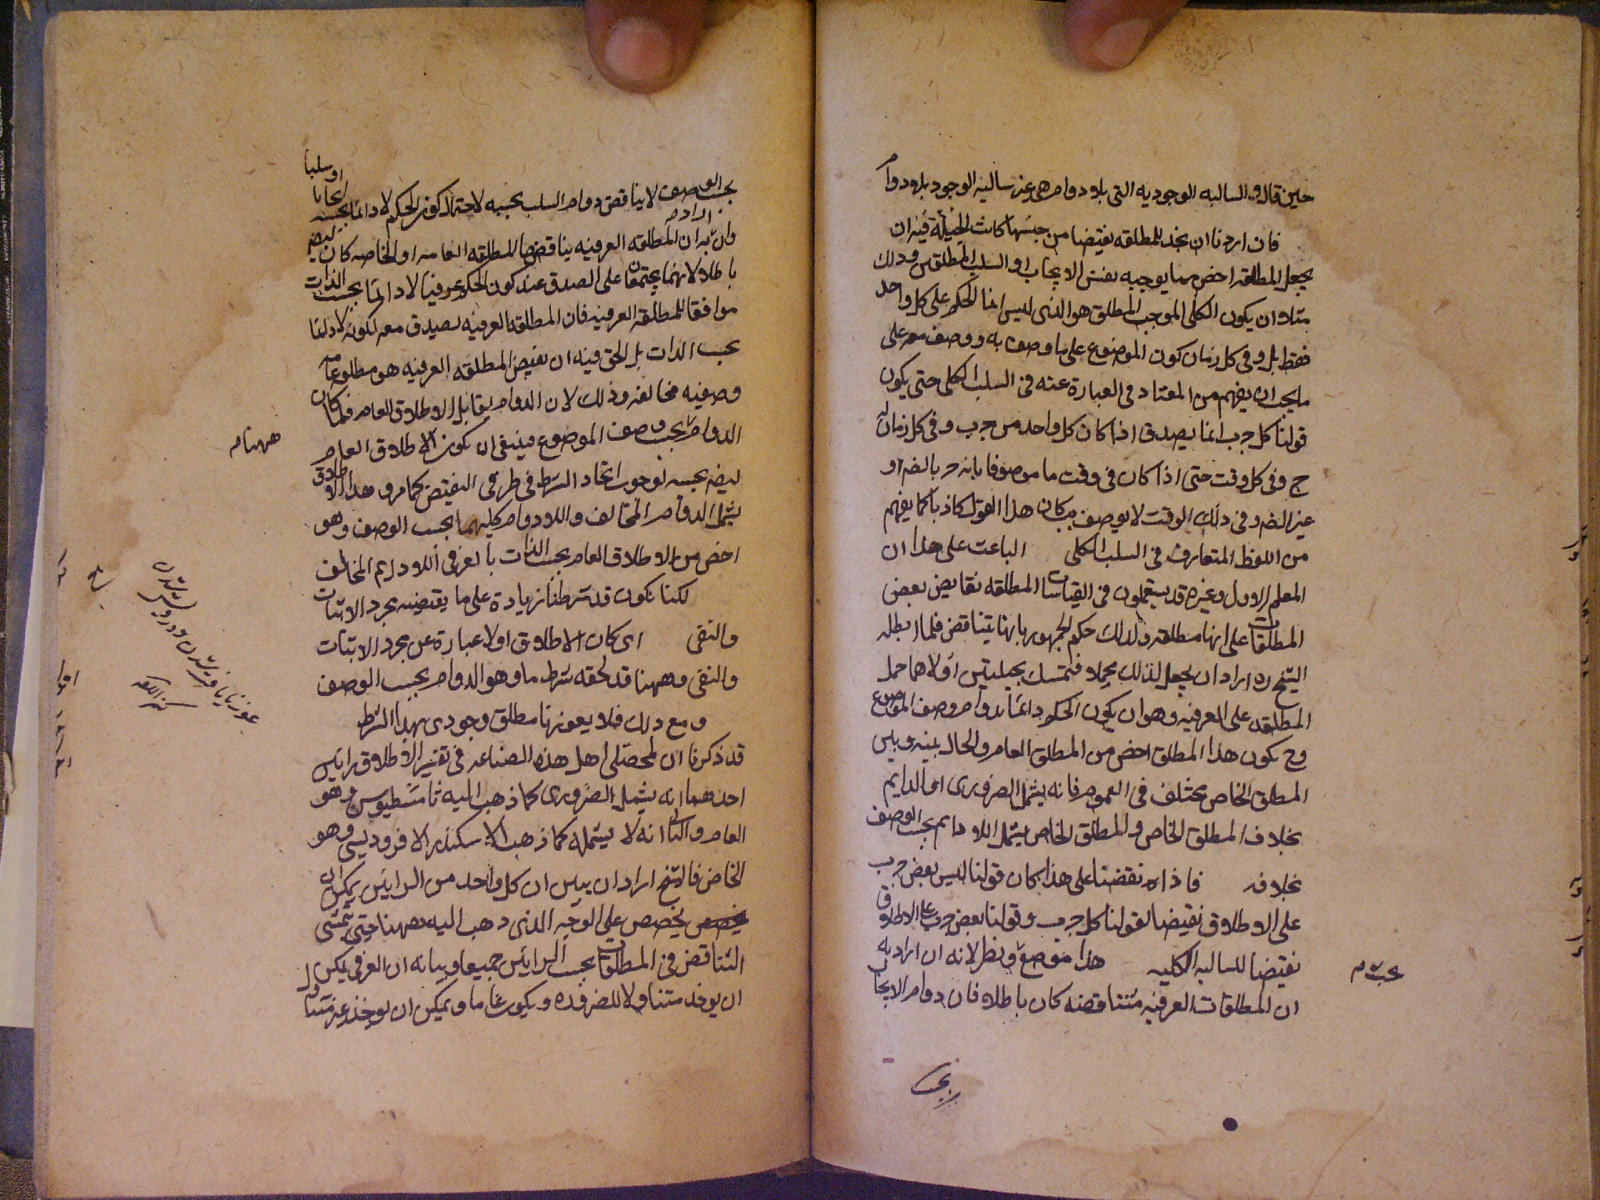 حين قالوا السالبه الوجوديه التى بلا دوام هى عن سالبه الوجود بلا دوام
فان اردنا ان نجد للمطلقه نقيضا من جنسها كانت الحيلة فيه ان
يجعل المطلقه اخص مما يوجبه نفس الايجاب او السلب المطلقين وذلك
مثلا ان يكون الكلى الموجب المطلق هو الذى ليس انما الحكم على كل واحد
فقط بل وفى كل زمان كون الموضوع على ما وصف به ووضع معه على
ما يجب ان يفهم من المعتاد فى العبارة عنه فى السلب الكلى حتى يكون
قولنا كل ج ب انما يصدق اذا كان كل واحد من ج ب وفى كل زمان له
ج وفى كل وقت حتى اذا كان فى وقت ما موصوفا بانه ج بالضروره او
غير الضروره وفى ذلك الوقت لا يوصف بب كان هذا القول كاذبا كما يفهم
من اللفظ المتعارف فى السلب الكلى الباعث على هذا ان
المعلم الاول وغيره قد يستعملون فى القياسات المطلقه نقايض بعض
المطلقات على انها مطلقه ولذلك حكم الجمهور بانها تتناقض فلما ابطله
الشيخ ره اراد ان يجعل لذلك محملا فتمسك بحيلتين اولاهما حمل
المطلقه على العرفيه وهو ان يكون الحكم دائما بدوام وصف الموضوع
وح يكون هذا المطلق اخص من المطلق العام والحال بينه وبين
المطلق الخاص مختلف فى العموم فانه يشمل الضرورى او الدايم
بخلاف المطلق الخاص والمطلق الخاص يشمل اللا دايم بحسب الوصف
بخلافه فاذا اتفقنا على هذا كان قولنا ليس بعض ج ب
على الاطلاق نقيضا لقولنا كل ج ب وقولنا بعض ج ب على الاطلاق
نقيضا للسالبه الكليه هذا موضع نظر لانه ان اراد به
ان المطلقات العرفيه متناقضه كان باطلا فان دوام الايجاب
بحسب
بحسب الوصف لا يناقض دوام السلب بحسبه لاحتمال كون الحكم لا دائما بحسبه ايجابا
او سلبا
وان اراد به ان المطلقه العرفيه يناقضها المطلقه العامه او الخاصه كان ايضا
باطلا لانهما يجتمعان على الصدق عند كون الحكم عرفيا لا دائما بحسب الذات
موافقا للمطلقه العرفيه فان المطلقه العرفيه يصدق معه لكونه لا دائما
بحسب الذات بل الحق فيه ان نقيض المطلقه العرفيه هو مطلقه عامه
وصفيه مخالفه وذلك لان الدوام يقابل الاطلاق العام فلما كان
الدوام بحسب وصف الموضوع فينبغى ان يكون الاطلاق العام
ههنا م
ايضا بحسبه لوجوب اتحاد الشرط فى طرفى النقيض كما مر وهذا الاطلاق
يشمل الدوام المخالف واللا دوام كليهما بحسب الوصف وهو
اخص من الاطلاق العام بحسب الذات بالعرفى اللا دايم المخالف
لكنا نكون قد شرطنا زيادة على ما يقتضيه مجرد الاثبات
والنفى اى كان الاطلاق اولا عبارة عن مجرد الاثبات
والنفى وههنا قد لحقه شرط ما وهو الدوام بحسب الوصف
ومع ذلك فلا يعوزنا مطلق وجودى بهذا الشرط
قد ذكرنا ان لمحصلى اهل هذه الصناعه فى تفسير الاطلاق رأيين
احدهما انه يشمل الضرورى كما ذهب اليه ثامسطيوس وهو
العام والثانى انه لا يشمله كما ذهب اليه الاسكندر الافروديسى وهو
الخاص فالشيخ اراد ان يبين ان كل واحد من الرأيين يمكن ان
يخصص على الوجه الذى ذهب اليه ههنا حتى يتمشى
التناقض فى المطلقات بحسب الرأيين جميعا وبيانه ان العرفى يمكن
ان يوخذ متناولا للضروره ويكون عاما ويمكن ان يوخذ غير متناول